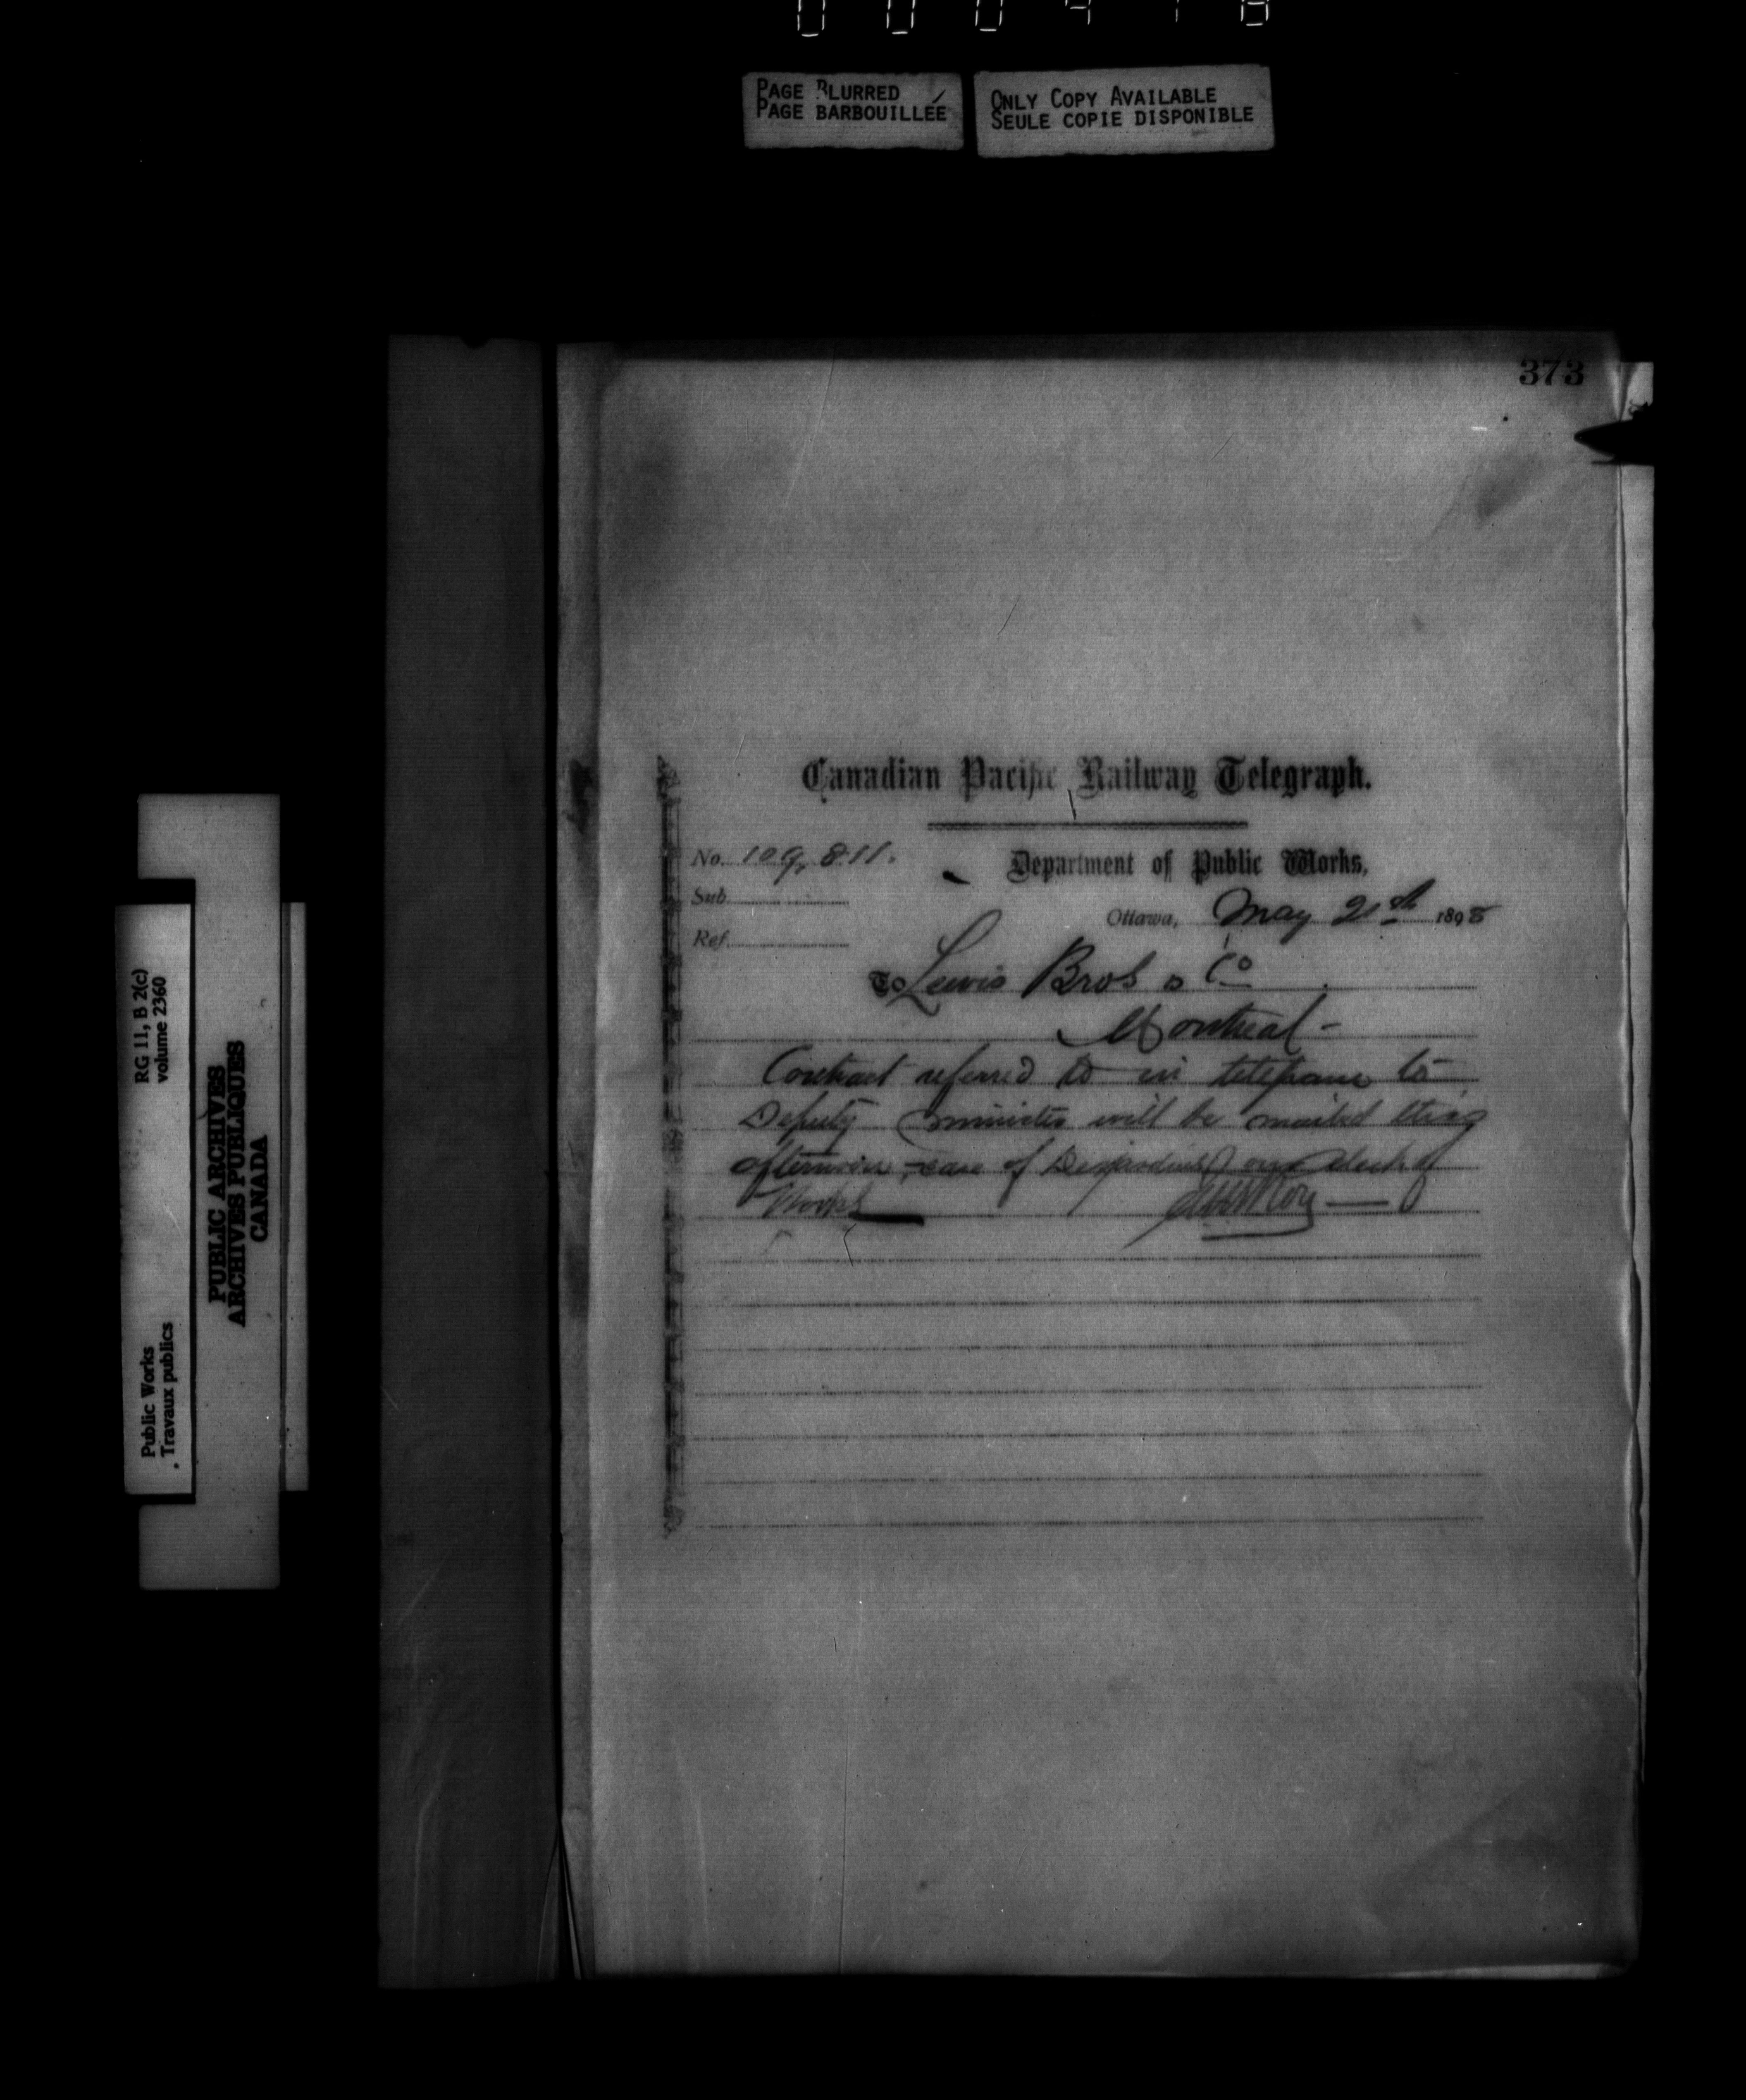 000418
PAGE BLURRED
PAGE BARBOUILLÉE
ONLY COPY AVAILABLE
SEULE COPIE DISPONIBLE
373
Canadian Pacific Railway Telegraph.
No. 109,811.
Department of Public Works,
Sub.
Ottawa, May 21st 1898
Ref.
To Lewis Bros & Co
Montreal -
Contract referred to in telegram to
Deputy minister will be mailed this
afternoon, care of our clerk of
Works
RG 11, B 2(c)
volume 2360
Public Works
Travaux publics
PUBLIC ARCHIVES
ARCHIVES PUBLIQUES
CANADA